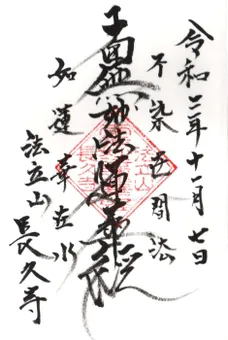 令和二年十一月七日
不染世間法
南無妙法蓮華経
如蓮華在水
法立山 長久寺